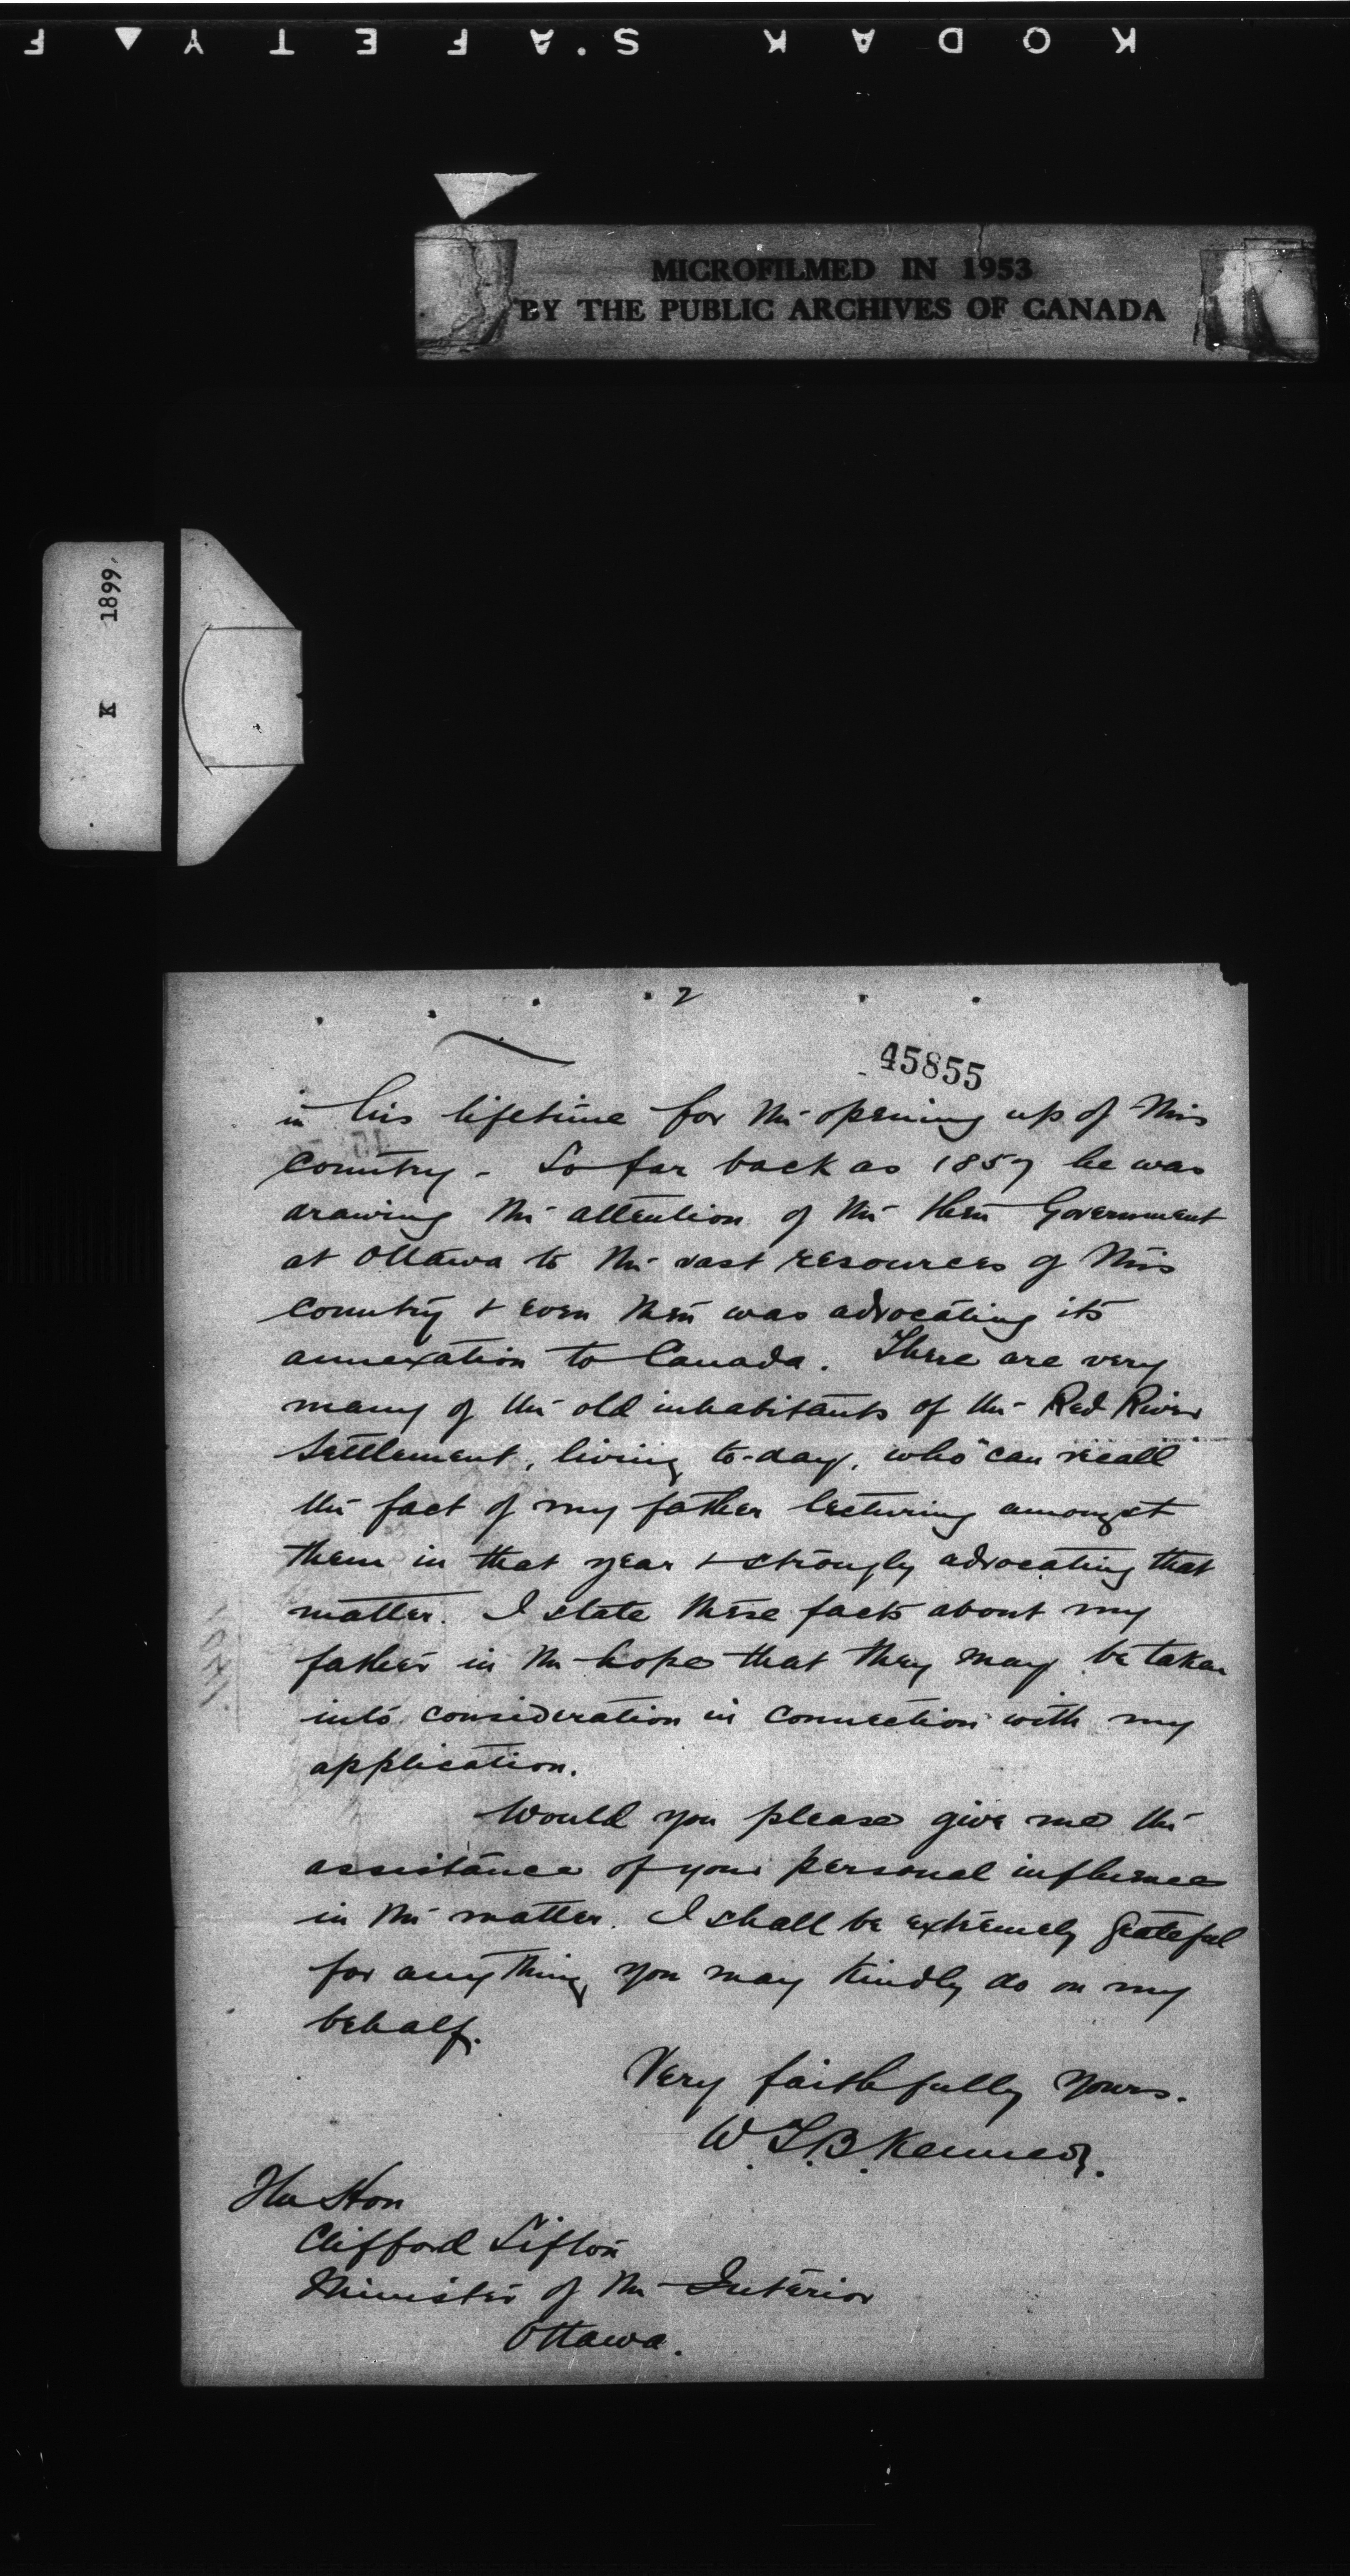 KODAK SAFETY
MICROFILMED IN 1953
BY THE PUBLIC ARCHIVES OF CANADA
K 1899
2
45855
in his lifetime for the opening up of this
country - So far back as 1857 he was
drawing the attention of the then Government
at Ottawa to the vast resources of this
country & even then was advocating its
annexation to Canada. There are very
many of the old inhabitants of the Red River
Settlement, living to-day, who can recall
the fact of my father lecturing amongst
them in that year & strongly advocating that
matter. I state these facts about my
father in the hope that they may be taken
into consideration in connection with my
application.
Would you please give me the
assistance of your personal influence
in the matter. I shall be extremely grateful
for anything you may kindly do on my
behalf.
Very faithfully yours.
W.T.B. Kennedy.
The Hon
Clifford Sifton
Minister of the Interior
Ottawa.